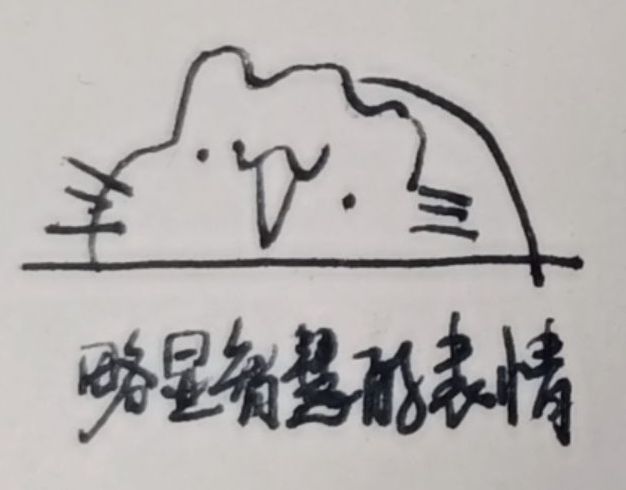 略显智慧的表情